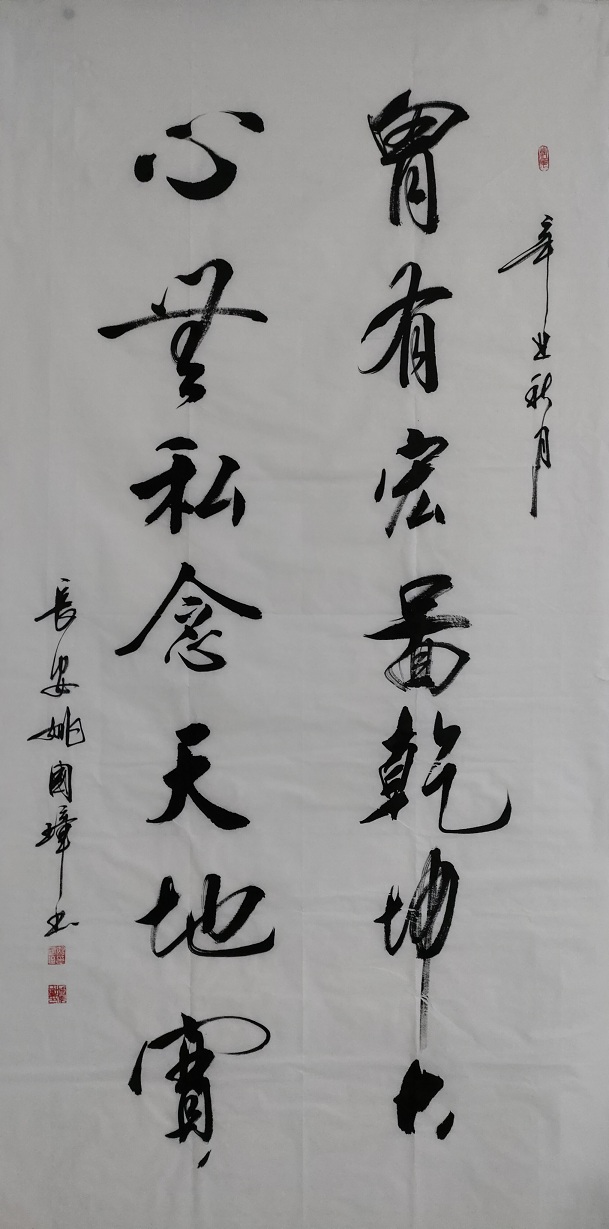 辛丑秋月
胷有宏圖乾坤大
心無私念天地寬
長安姚國璋书